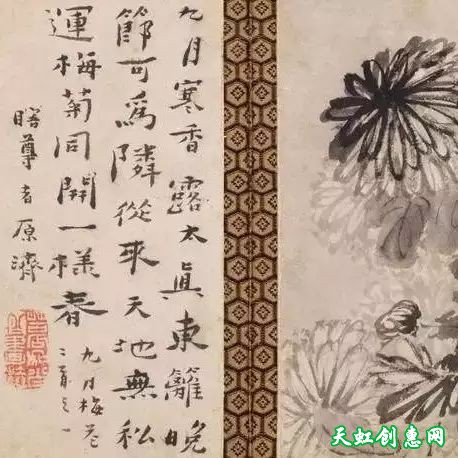 九月寒香露太真東籬晚
節可為隣從來天地無私
運梅菊同開一樣春
九月梅花
二首之一
瞎尊者原濟
天虹创意网